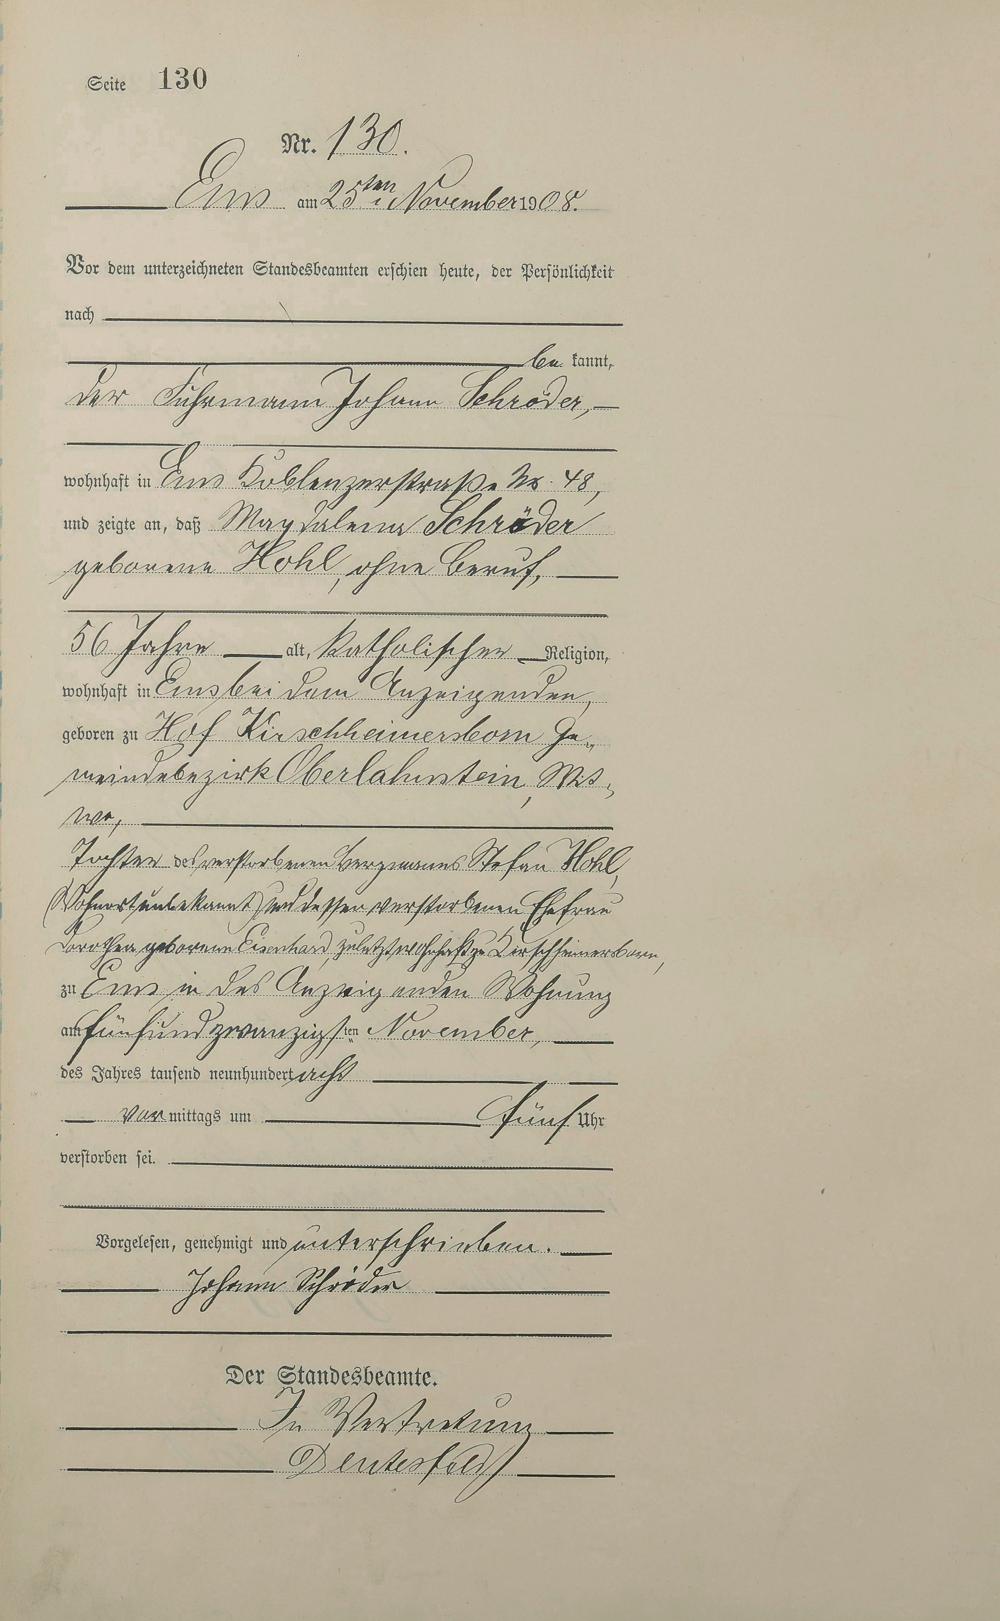 Seite 130
Nr. 130.
Ems am 25ten November 1908.
Vor dem unterzeichneten Standesbeamten erschien heute, der Persönlichkeit
nach
be kannt,
der Fuhrmann Johann Schröder,
wohnhaft in Ems Koblenzerstraße Nr. 48,
und zeigte an, daß Magdalena Schröder
geborene Hohl, ohne Beruf,
56 Jahre alt, katholischer Religion,
wohnhaft in Ems bei dem Anzeigenden,
geboren zu Hof Kirschheimersborn Ge-
meindebezirk Oberlahnstein, Wit-
we,
Tochter des verstorbenen Bergmanns Stefan Hohl,
(Wohnort unbekannt) und dessen verstorbenen Ehefrau
Dorothea geborene Eisenhard, zuletzt wohnhaft zu Kirschheimersborn,
zu Ems in des Anzeigenden Wohnung
am fünfundzwanzigsten November,
des Jahres tausend neunhundert acht
vor mittags um fünf Uhr
verstorben sei.
Vorgelesen, genehmigt und unterschrieben.
Johann Schröder
Der Standesbeamte.
In Vertretung